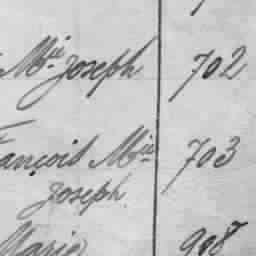 Mie Joseph 702
François Mie 703
Joseph.
Marie 908